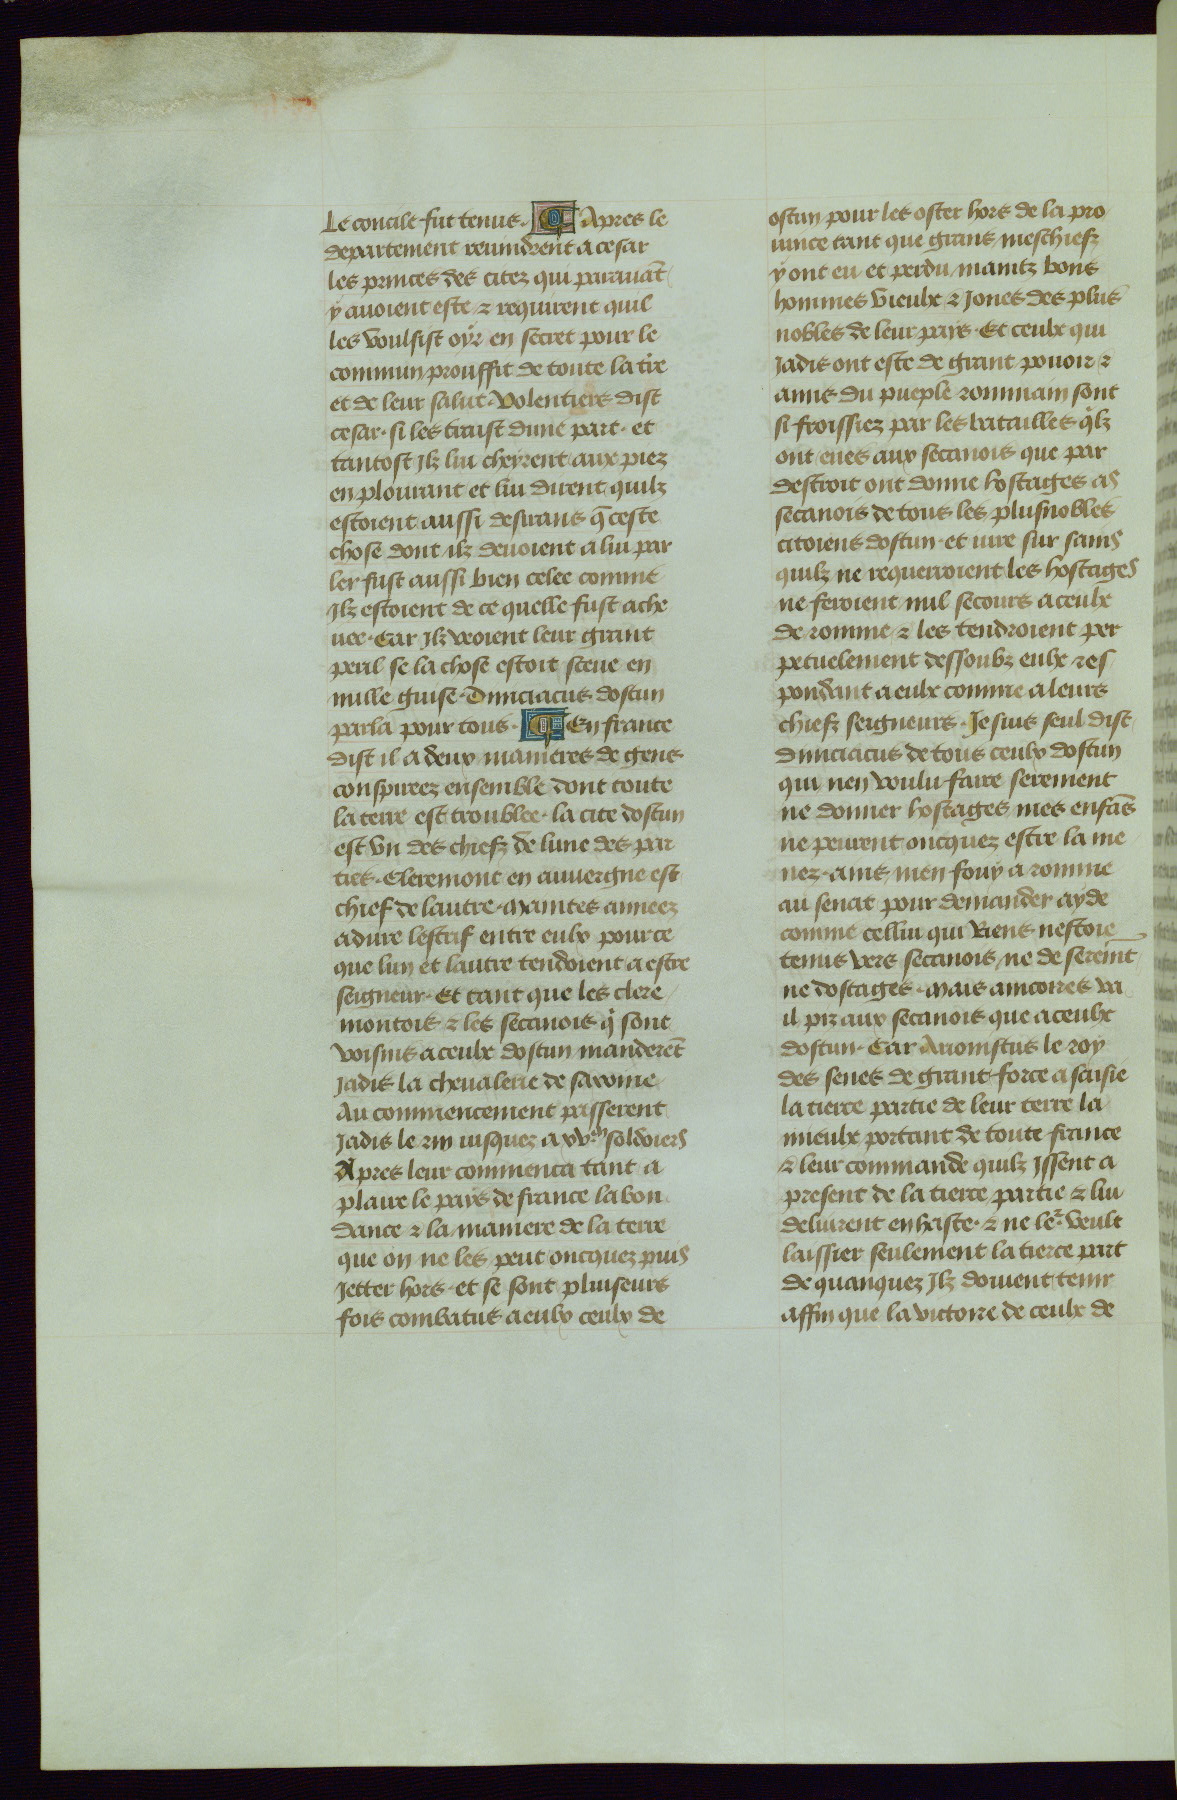 Le concile fut tenus. ¶ Apres le
departement reuindrent a cesar
les princes des citez qui parauāt
y auoient este & requirent quil
les voulsist oyr en secret pour le
commun prouffit de toute la t̄re
et de leur salut. Volentiers dist
cesar. si les traist dune part. et
tantost Ilz lui cheyrent aux piez
en plourant et lui dirent quilz
estoient aussi desirans q̄ ceste
chose dont ilz deuoient a lui par
ler fust aussi bien celee comme
Ilz estoient de ce quelle fust ache
uee. Car Ilz veoient leur grant
peril se la chose estoit sceue en
nulle guise. Diuiciacus dostun
parla pour tous. ¶ En france
dist il a deux manieres de gens
conspireez ensemble dont toute
la terre est troublee. la cite dostun
est vn des chiefz de lune des par
ties. Cleremont en auuergne est
chief de lautre. Maintes anneez
a dure lestrif entre eulx pour ce
que lun et lautre tendoient a estre
seigneur. Et tant que les clere
montois & les secanois q̍ sont
voisins a ceulx dostun manderēt
Jadis la cheualerie de saxonie
Au commencement passerent
Jadis le rin iusquez a xv.m soldoiers
Apres leur commenca tant a
plaire le pays de france labon
dance & la maniere de la terre
que on ne les peut oncquez puis
Jetter hors. et se sont pluiseurs
fois combatus a eulx ceulx de
ostun pour les oster hors de la pro
uince tant que grans meschiefz
y ont eu et perdu maintz bons
hommes vieulx & Jones des plus
nobles de leur pays. Et ceulx qui
Jadis ont este de grant pouoir &
amis du pueple rommain sont
si froissiez par les batailles q̍lz
ont eues aux secanois que par
destroit ont donne hostages as
secanois de tous les plusnobles
citoiens dostun. et iure sur sains
quilz ne requerroient les hostages
ne feroient nul secours a ceulx
de romme & les tendroient per
petuelement dessoubz eulx res
pondant a eulx comme a leurs
chiefz seigneurs. Je suis seul dist
diuiciacus de tous ceulx dostun
qui nen voulu faire serement
ne donner hostages mes enfās
ne peurent oncquez estre la me
nez. ains men fouy a romme
au senat pour demander ayde
comme cellui qui Riens nestoie
tenus vers secanois ne de seremt
ne dostages. Mais aincores va
il piz aux secanois que a ceulx
dostun. Car Arionistus le roy
des senes de grant force a saisie
la tierce partie de leur terre la
mieulx portant de toute france
& leur commande quilz Jssent a
present de la tierce partie & lui
deliurent en haste. & ne leᷣ veult
laissier seulement la tierce part
de quanquez Ilz doiuent tenir
affin que la victoire de ceulx de